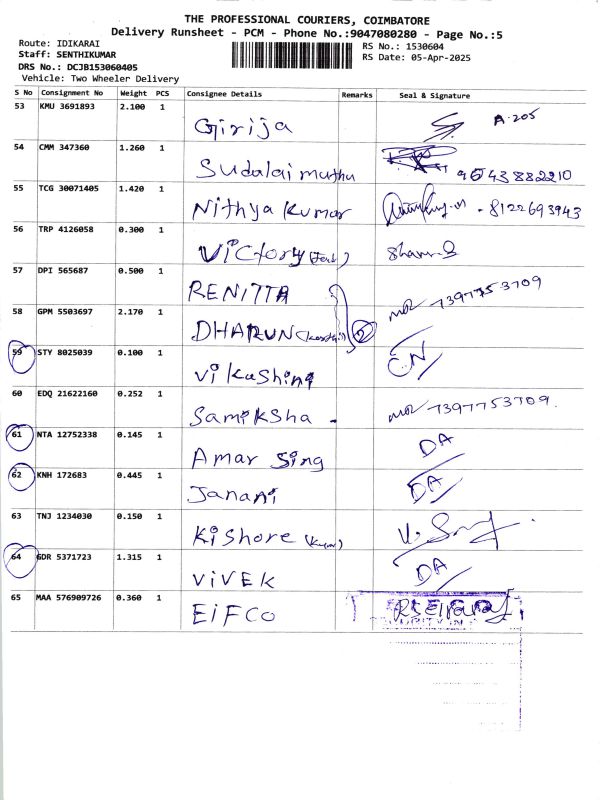 THE PROFESSIONAL COURIERS, COIMBATORE
Delivery Runsheet - PCM - Phone No.:9047080280 - Page No.:5
Route: IDIKARAI RS No.: 1530604
Staff: SENTHIKUMAR RS Date: 05-Apr-2025
DRS No.: DCJB153060405
Vehicle: Two Wheeler Delivery
S No Consignment No Weight PCS Consignee Details Remarks Seal & Signature
53 KMU 3691893 2.100 1 Girija A-205
54 CMM 347360 1.260 1 Sudalai muthu 9543882210
55 TCG 30071405 1.420 1 Nithya Kumar 8122693943
56 TRP 4126058 0.300 1 Victory
57 DPI 565687 0.500 1 RENITTA 7397753709
58 GPM 5503697 2.170 1 DHARUN 2
59 STY 8025039 0.100 1 Vikashini
60 EDQ 21622160 0.252 1 Samiksha 7397753709
61 NTA 12752338 0.145 1 Amar Sing DA
62 KNH 172683 0.445 1 Janani DA
63 TNJ 1234030 0.150 1 Kishore
64 GDR 5371723 1.315 1 ViVEK DA
65 MAA 576909726 0.360 1 EiFCo